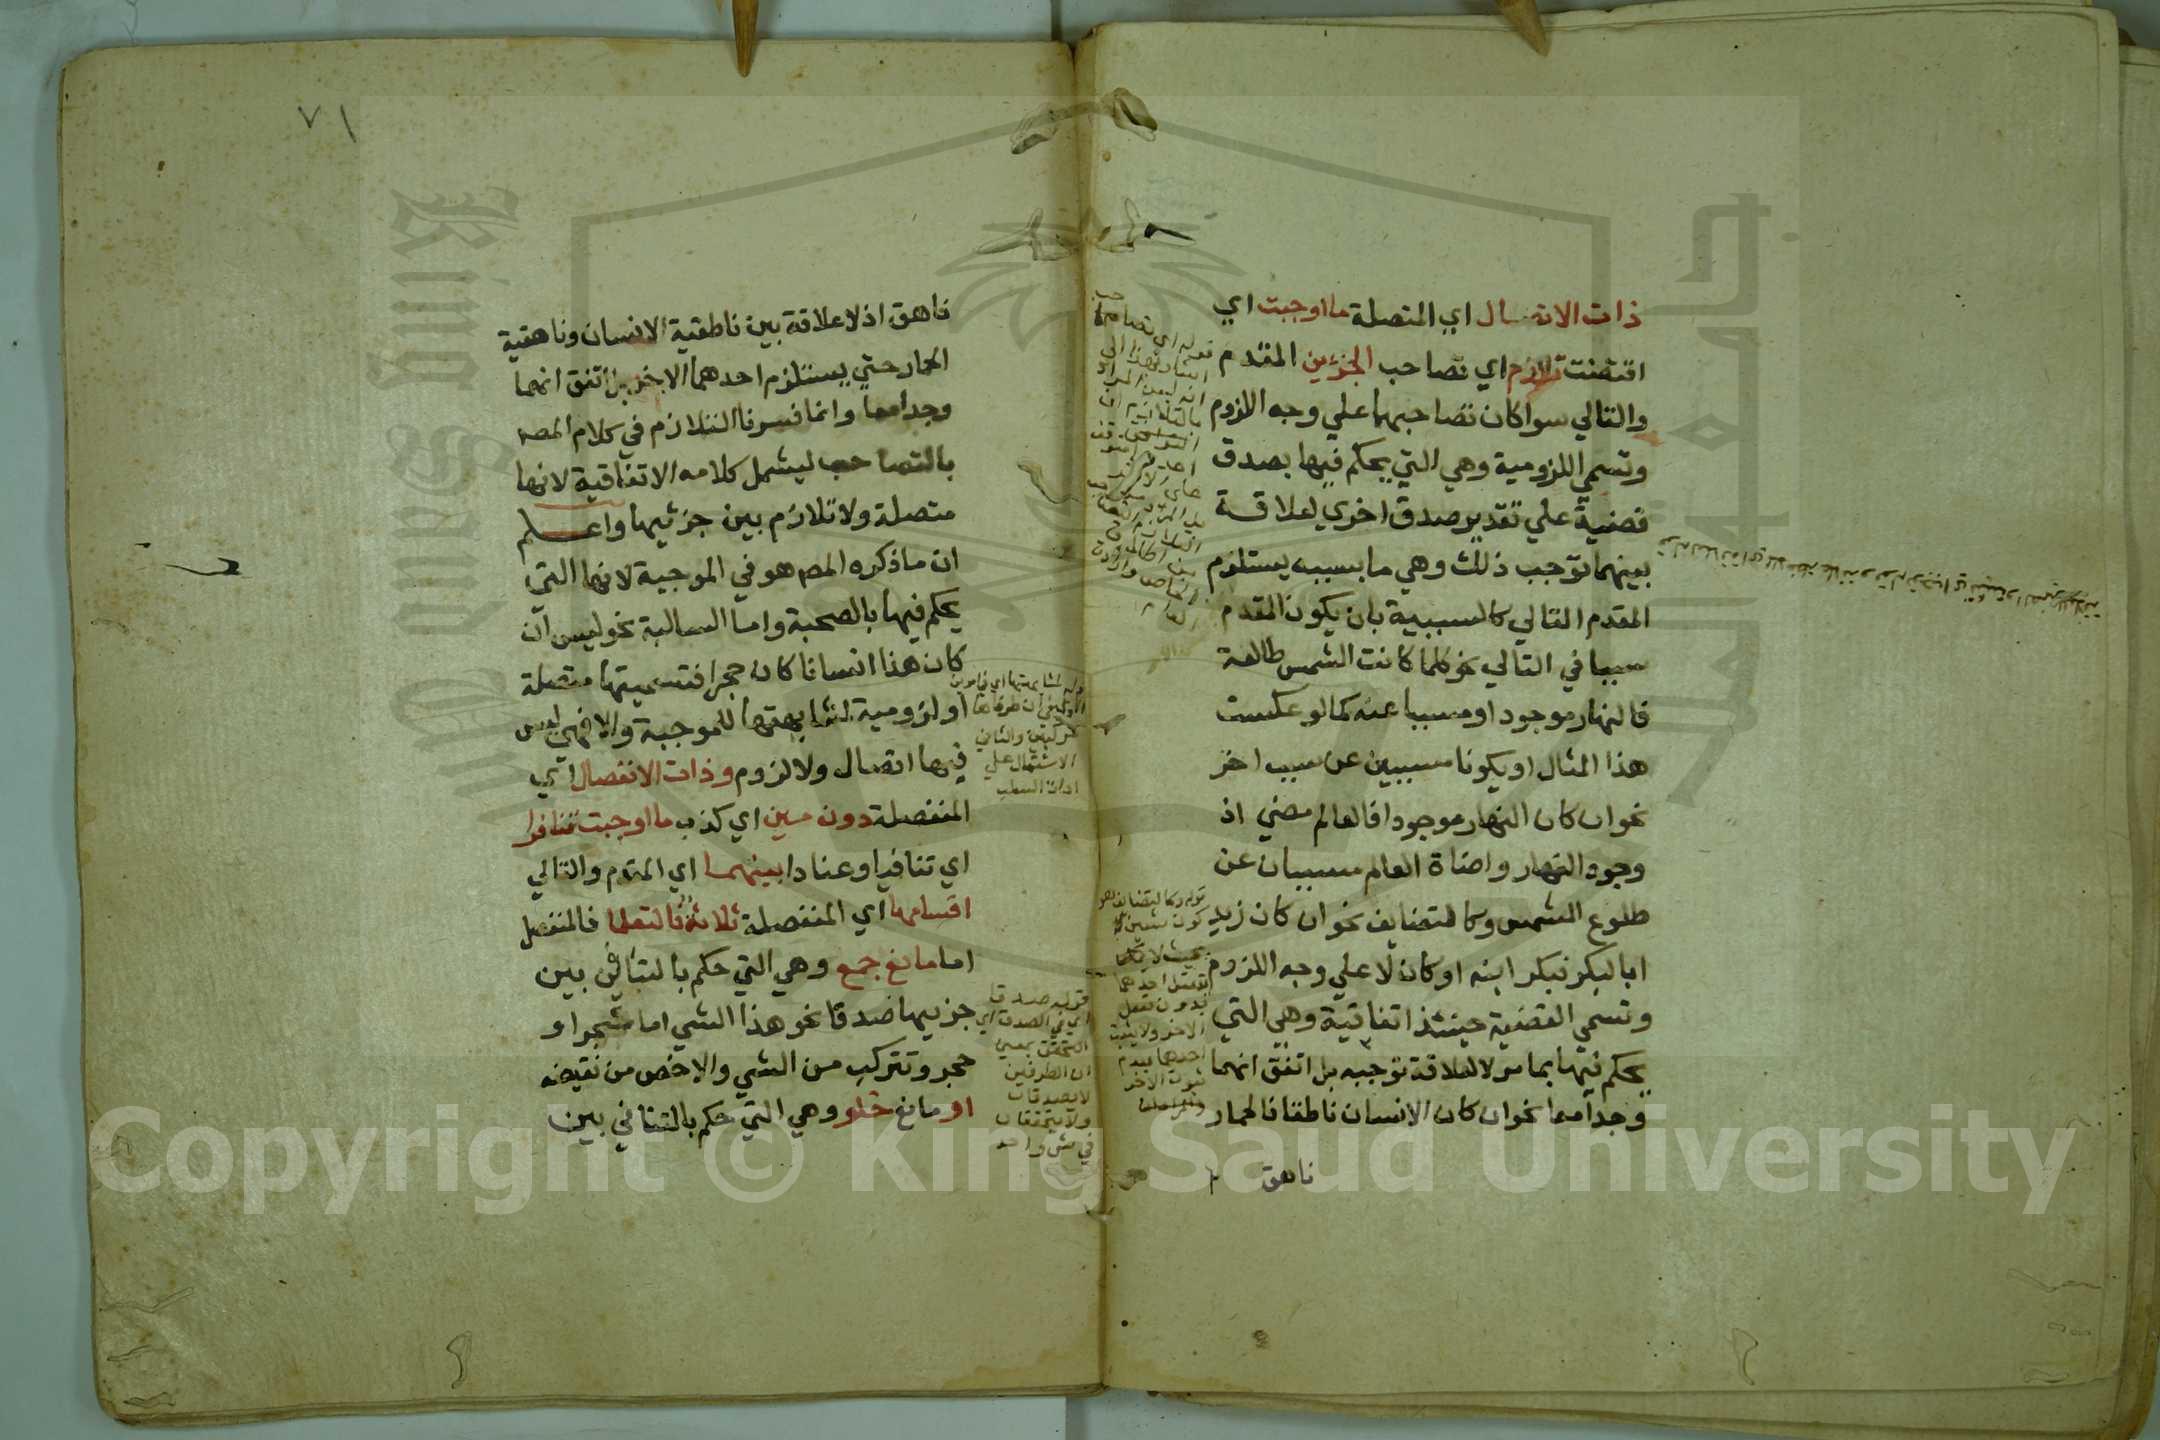 ذات الاتصال اي المتصلة ما اوجبت اي
اقتضت تلازم اي تصاحب الجزئين المقدم
والتالي سوا كان تصاحبهما علي وجه اللزوم
وتسمي اللزومية وهي التي يحكم فيها بصدق
قضية علي تقدير صدق اخري لعلاقة
بينهما توجب ذلك وهي ما بسببه يستلزم
المقدم التالي كالسببية بان يكون المقدم
سببا في التالي نحو كلما كانت الشمس طالعة
فالنهار موجود او مسببا عنه كما لو عكست
هذا المثال او يكونا مسببين عن سبب اخر
نحو ان كان النهار موجودا فالعالم مضي اذ
وجود النهار واضاة العالم مسببان عن
طلوع الشمس وكالتضايف نحو ان كان زيد
ابا لبكر فبكر ابنه او كان لا علي وجه اللزوم
وتسمي القضية حينئذ اتفاقية وهي التي
يحكم فيها بما مر لا لعلاقة توجبه بل اتفق انهما
وجدا معا نحو ان كان الانسان ناطقا فالحمار
ناهق
قوله وكالتضايف هو
كون شيئين
بحيث لا يمكن
تعقل احدهما
بدون تعقل
الاخر ولا يثبت
احدهما بدون
ثبوت الاخر
٧١
ناهق اذ لا علاقة بين ناطقية الانسان وناهقية
الحمار حتي يستلزم احدهما الاخر بل اتفق انهما
وجدا معا وانما فسرنا التلازم في كلام المصـ
بالتصاحب ليشمل كلامه الاتفاقية لانها
متصلة ولا تلازم بين جزئيها واعلم
ان ما ذكره المصـ هو في الموجبة لانها التي
يحكم فيها بالصحبة واما السالبة نحو ليس ان
كان هذا انسانا كان حجرا فتسميتها متصلة
او لزومية لمشابهتها للموجبة والا فهي ليس
فيها اتصال ولا لزوم وذات الانفصال اي
المنفصلة دون مين اي كذب ما اوجبت تنافرا
اي تنافيا وعنادا بينهما اي المقدم والتالي
اقسامها اي المنفصلة ثلاثة فالتعلما فالمنفصل
اما مانع جمع وهي التي حكم بالتنافي بين
جزييها صدقا نحو هذا الشي اما شجر او
حجر وتتركب من الشي والاخص من نقيضه
او مانع خلو وهي التي حكم بالتنافي بين
الاشتمال علي
اداة السلب
قوله صدقا
اي في الصدق اي
التحقق بمعني
ان الطرفين
لا يصدقان
ولا يتحققان
في شي واحد
Copyright © King Saud University